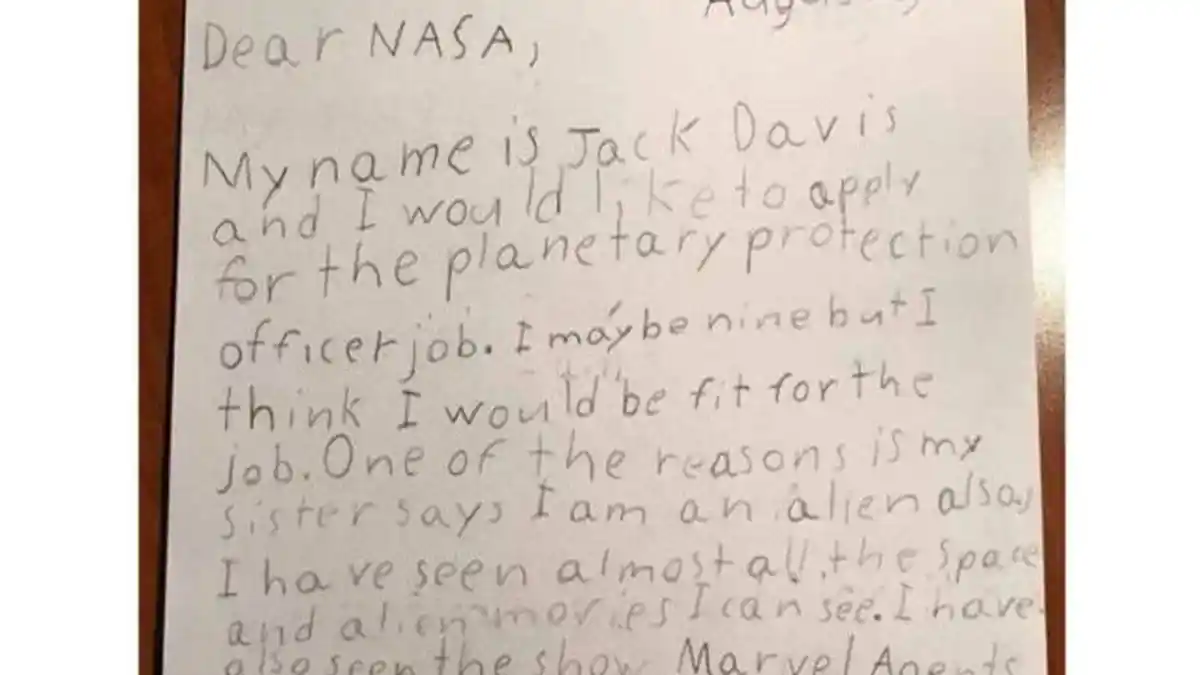 Dear NASA,
My name is Jack Davis
and I would like to apply
for the planetary protection
officer job. I maybe nine but I
think I would be fit for the
job. One of the reasons is my
sister says I am an alien also,
I have seen almost all the space
and alien movies I can see. I have
also seen the show Marvel Agents